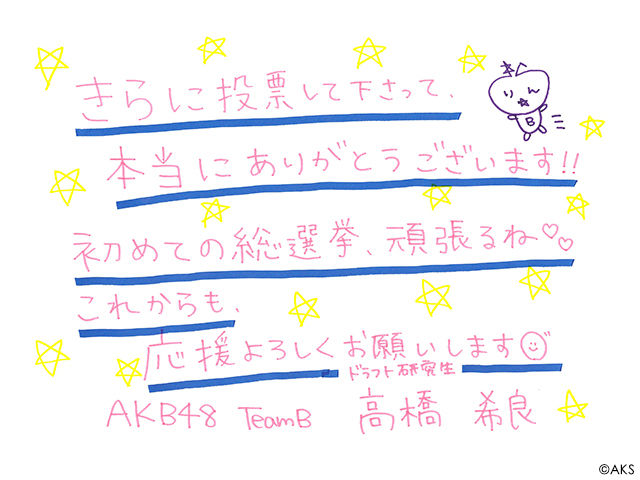 きらに投票して下さって、
本当にありがとうございます!!
初めての総選挙、頑張るね♡♡
これからも、
応援よろしくお願いします
ドラフト研究生
AKB48 TeamB 高橋 希良
りん
B
©AKS